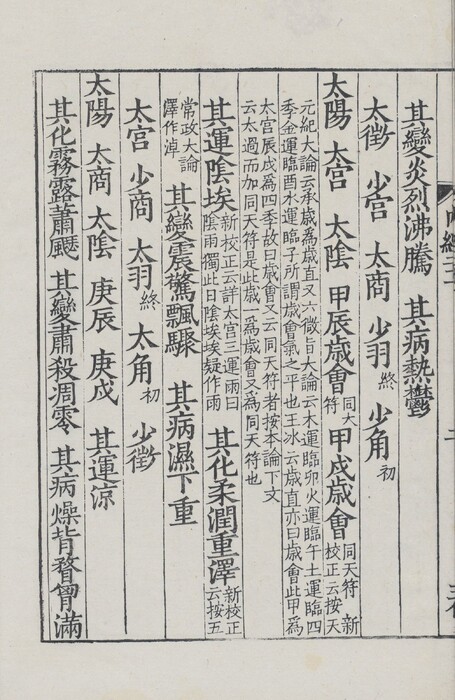 其變炎烈沸騰 其病熱鬱
太徵 少宮 太商 少羽終 少角初
太陽 太宮 太陰 甲辰歲會同大符 甲戌歲會同天符 新校正云按天
元紀大論云承歲為歲直又六微旨大論云木運臨卯火運臨午土運臨四
季金運臨酉水運臨子所謂歲會氣之平也王冰云歲直亦曰歲會此甲為
太宮辰戌為四季故曰歲會又云同天符者按本論下文
云太過而加同天符是此歲一為歲會又為同天符也
其運陰埃新校正云詳太宮三運兩曰陰雨獨此曰陰埃埃疑作雨 其化柔潤重澤新校正云按五
常政大論澤作淖 其變震驚飄驟 其病濕下重
太宮 少商 太羽終 太角初 少徵
太陽 太商 太陰 庚辰 庚戌 其運涼
其化霧露蕭飋 其變肅殺凋零 其病燥背瞀胷滿